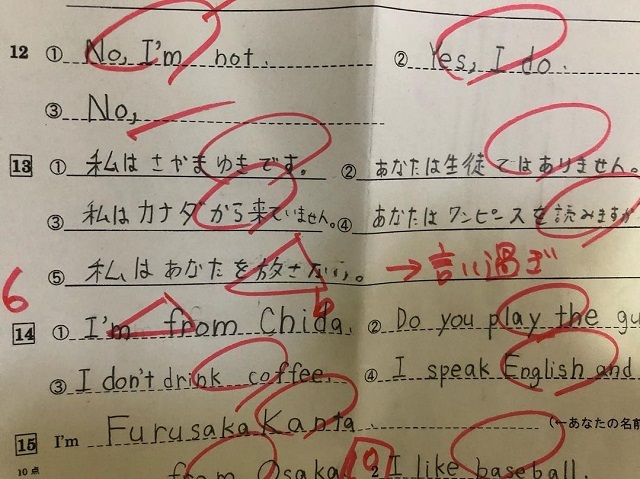 12 ① No, I'm not. ② Yes, I do.
③ No,
13 ① 私はさかまゆきです。 ② あなたは生徒ではありません。
③ 私はカナダから来ていません。 ④ あなたはワンピースを読みますか
⑤ 私はあなたを放さない。 → 言い過ぎ
6
14 ① I'm from Chida. ② Do you play the gu
b
③ I don't drink coffee. ④ I speak English and
15 I'm Furusaka Kanta. (←あなたの名前
10点 from Osaka 10 2 I like baseball.